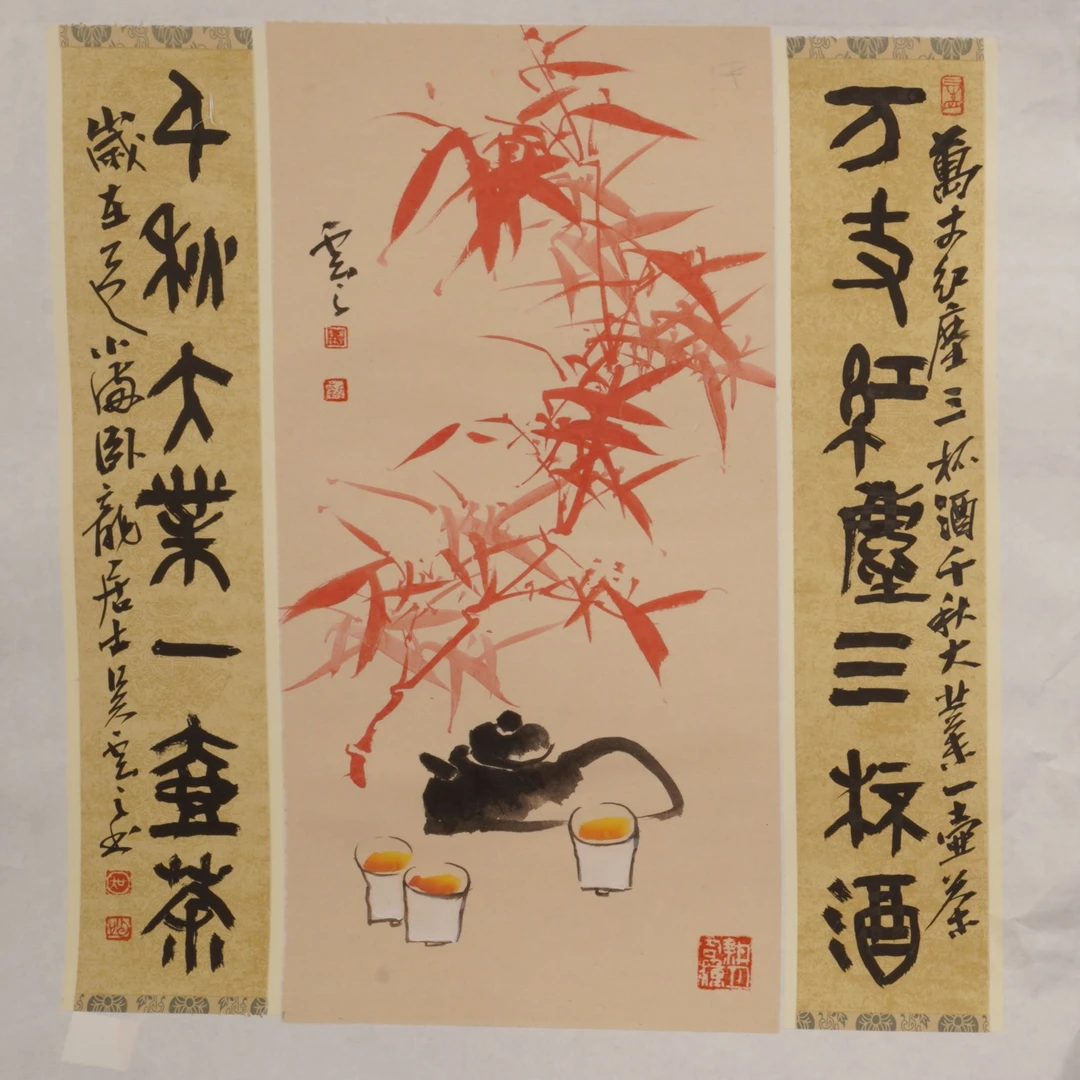 萬丈紅塵三杯酒千秋大業一壺茶
万丈紅塵三杯酒
雲之
千秋大業一壺茶
歲在乙巳小滿卧龍居士吳雲之書